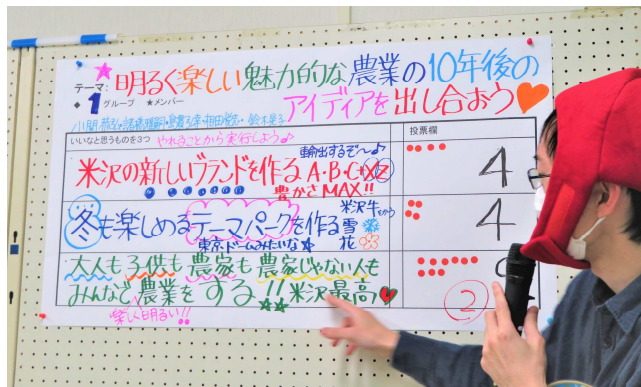 テーマ: ★明るく楽しい魅力的な農業の10年後の
◆1グループ ★メンバー
アイディアを出し合おう♥
いいなと思うものを3つ やれることから実行しよう♪
投票欄
輸出するぞ〜♪
米沢の新しいブランドを作る A・B・C・XYZ
豊かさMAX!!
4
冬も楽しめるテーマパークを作る
米沢牛
雪
花
東京ドームみたいな★
4
大人も子供も農家も農家じゃない人も
みんなで農業をする!! 米沢最高♥
楽しく明るい!!
②